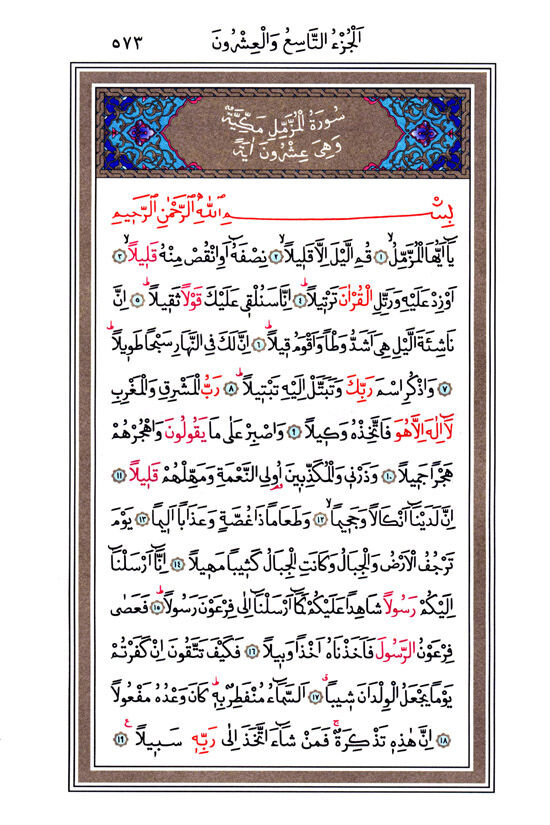 اَلْجُزْءُ التَّاسِعُ وَالْعِشْرُونَ ٥٧٣
سُورَةُ الْمُزَّمِّلِ مَكِّيَّةٌ
وَهِيَ عِشْرُونَ اٰيَةً
بِسْمِ اللّٰهِ الرَّحْمٰنِ الرَّحِيمِ
يَٓا اَيُّهَا الْمُزَّمِّلُۙ ﴿١﴾ قُمِ الَّيْلَ اِلَّا قَلٖيلاًۙ ﴿٢﴾ نِصْفَهُٓ اَوِ انْقُصْ مِنْهُ قَلٖيلاًۙ ﴿٣﴾
اَوْ زِدْ عَلَيْهِ وَرَتِّلِ الْقُرْاٰنَ تَرْتٖيلاًؕ ﴿٤﴾ اِنَّا سَنُلْقٖى عَلَيْكَ قَوْلاً ثَقٖيلاًؕ ﴿٥﴾ اِنَّ
نَاشِئَةَ الَّيْلِ هِىَ اَشَدُّ وَطْـٔاً وَاَقْوَمُ قٖيلاًؕ ﴿٦﴾ اِنَّ لَكَ فِى النَّهَارِ سَبْحاً طَوٖيلاًؕ
﴿٧﴾ وَاذْكُرِ اسْمَ رَبِّكَ وَتَبَتَّلْ اِلَيْهِ تَبْتٖيلاًؕ ﴿٨﴾ رَبُّ الْمَشْرِقِ وَالْمَغْرِبِ
لَٓا اِلٰهَ اِلَّا هُوَ فَاتَّخِذْهُ وَكٖيلاً ﴿٩﴾ وَاصْبِرْ عَلٰى مَا يَقُولُونَ وَاهْجُرْهُمْ
هَجْراً جَمٖيلاً ﴿١٠﴾ وَذَرْنٖى وَالْمُكَذِّبٖينَ اُولِى النَّعْمَةِ وَمَهِّلْهُمْ قَلٖيلاً ﴿١١﴾
اِنَّ لَدَيْنَٓا اَنْكَالاً وَجَحٖيماًۙ ﴿١٢﴾ وَطَعَاماً ذَا غُصَّةٍ وَعَذَاباً اَلٖيماً ﴿١٣﴾ يَوْمَ
تَرْجُفُ الْاَرْضُ وَالْجِبَالُ وَكَانَتِ الْجِبَالُ كَثٖيباً مَهٖيلاً ﴿١٤﴾ اِنَّٓا اَرْسَلْنَٓا
اِلَيْكُمْ رَسُولاً شَاهِداً عَلَيْكُمْ كَمَٓا اَرْسَلْنَٓا اِلٰى فِرْعَوْنَ رَسُولاًؕ ﴿١٥﴾ فَعَصٰى
فِرْعَوْنُ الرَّسُولَ فَاَخَذْنَاهُ اَخْذاً وَبٖيلاً ﴿١٦﴾ فَكَيْفَ تَتَّقُونَ اِنْ كَفَرْتُمْ
يَوْماً يَجْعَلُ الْوِلْدَانَ شٖيباًۗ ﴿١٧﴾ اَلسَّمَٓاءُ مُنْفَطِرٌ بِهٖؕ كَانَ وَعْدُهُ مَفْعُولاً
﴿١٨﴾ اِنَّ هٰذِهٖ تَذْكِرَةٌۚ فَمَنْ شَٓاءَ اتَّخَذَ اِلٰى رَبِّهٖ سَبٖيلاًࣖ ﴿١٩﴾